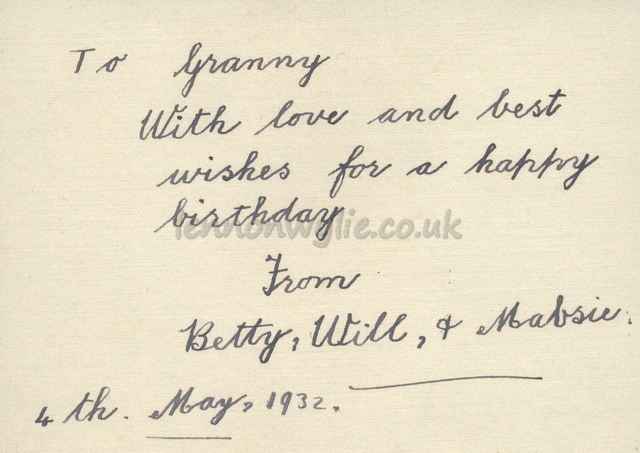 To Granny
With love and best
wishes for a happy
birthday
lennonwylie.co.uk
From
Betty, Will, & Mabsie.
4th. May, 1932.